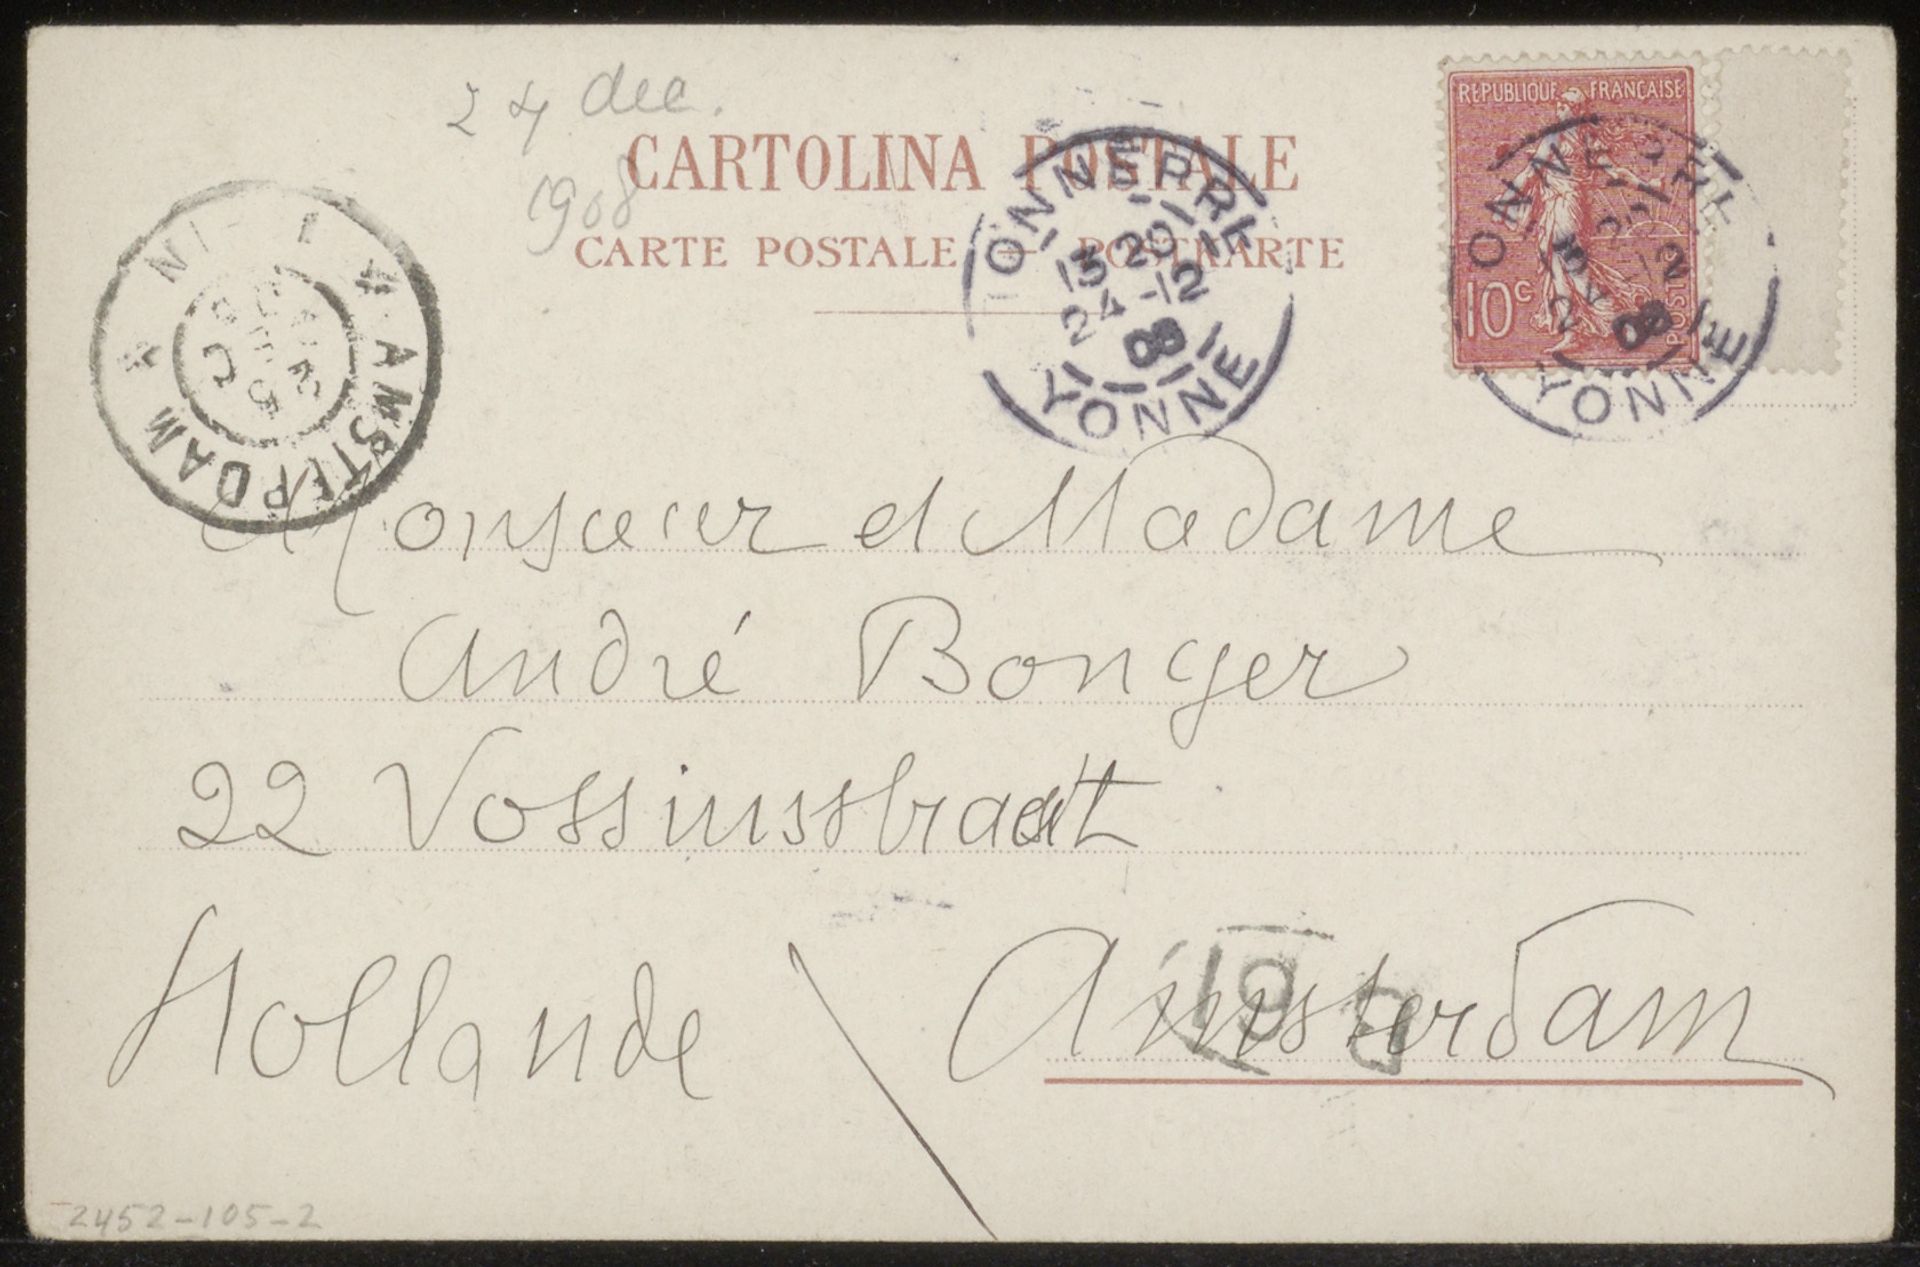 24 dec.
1908
CARTOLINA POSTALE
CARTE POSTALE — POSTKARTE
REPUBLIQUE FRANÇAISE
10c
POSTES
TONNERRE
13 20
24-12
08
YONNE
TONNERRE
13 20
24-12
08
YONNE
AMSTERDAM
Monsieur et Madame
André Bonger
22 Vossiusstraat
Hollande / Amsterdam
19 B
2452-105-2